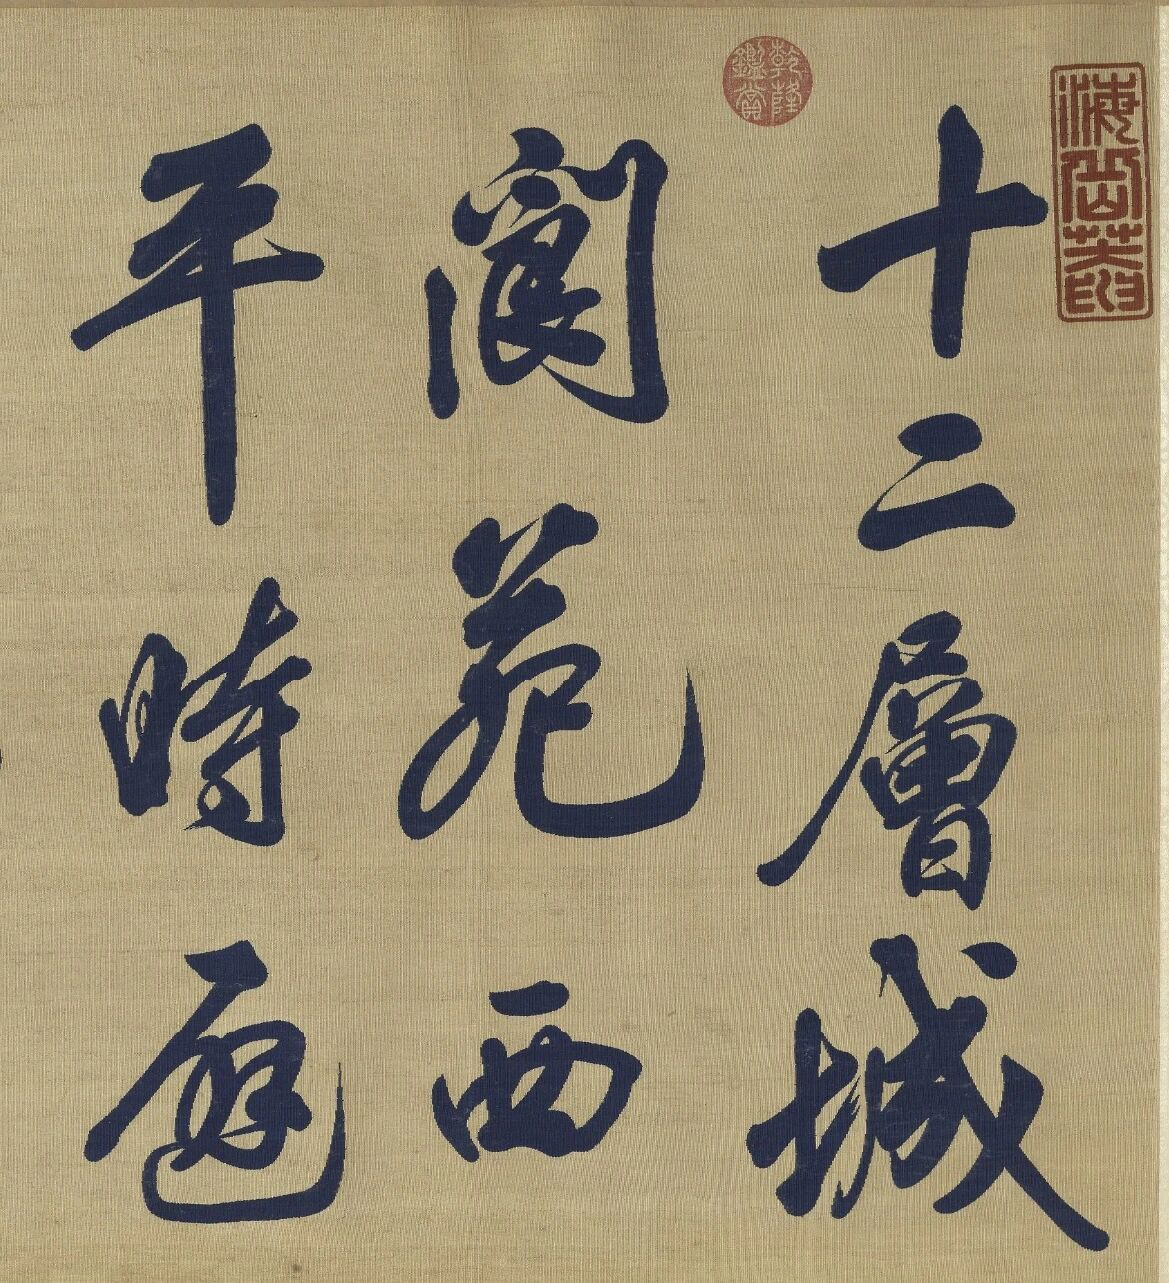 十二層城
閬苑西
平時避
乾隆鑑賞